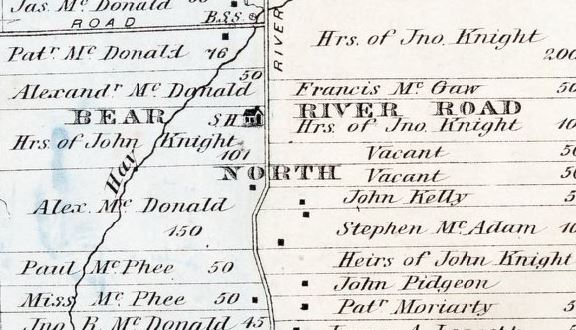 Jas. Mc Donald
ROAD
B.S.S.
Patr Mc Donald 76
50
Alexandr Mc Donald
BEAR
S H
Hrs. of John Knight
101
Hay
Alex. Mc Donald
150
Paul McPhee 50
Miss Mc Phee 50
Jno R. McDonald 45
RIVER
Hrs. of Jno. Knight
200
Francis Mc Gaw 50
RIVER ROAD
Hrs. of Jno. Knight
Vacant
NORTH
Vacant
John Kelly
Stephen McAdam
Heirs of John Knight
John Pidgeon
Patr Moriarty